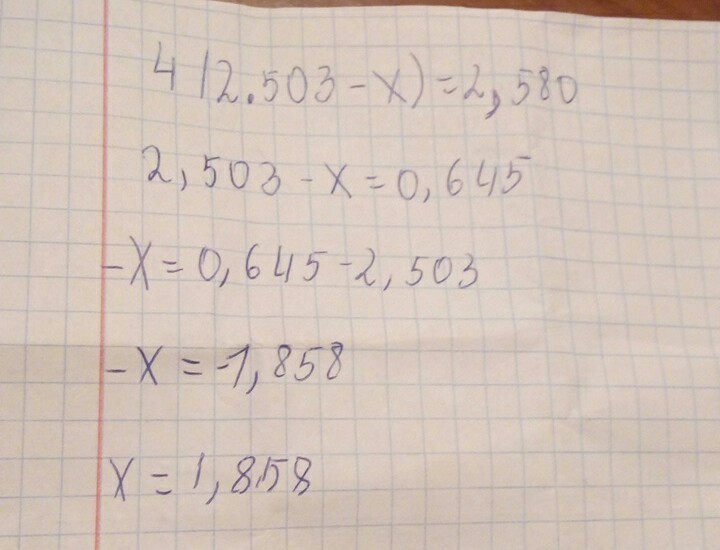 4(2.503-x)=2,580
2,503-x=0,645
-x=0,645-2,503
-x=-1,858
x=1,858